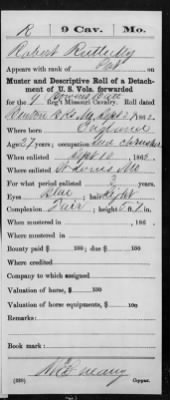 R | 9 Cav. | Mo.
Robert
Appears with rank of Pvt on
Muster and Descriptive Roll of a Detach-
ment of U. S. Vols. forwarded
for the 9 Reg't Missouri Cavalry. Roll dated
Benton Bks Mo, Sept 27, 1862.
Where born England
Age 27 years; occupation
When enlisted Sept 10, 186
Where enlisted St Louis Mo
For what period enlisted 3 years.
Eyes Blue; hair Light
Complexion Fair; height 5 ft. in.
When mustered in , 186 .
Where mustered in
Bounty paid $ 100; due $ 100
Where credited
Company to which assigned
Valuation of horse, $ 100
Valuation of horse equipments, $ 100
Remarks:
Book mark:
(339) Copyist.